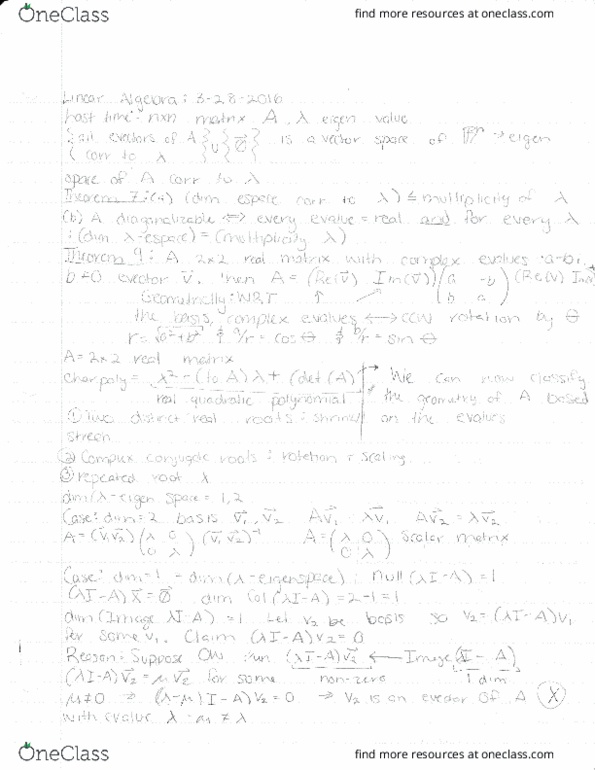 OneClass
find more resources at oneclass.com
Linear Algebra: 3-28-2016
Last time: nxn matrix A, λ eigen value
{all evectors of A corr to λ} ∪ {0⃗} is a vector space of → eigen
space of A corr to λ
Theorem 7: (a) (dim espace corr to λ) ≤ multiplicity of λ
(b) A diagonalizable ⟺ every evalue = real and for every λ
: (dim λ-espace) = (multiplicity λ)
Theorem 9: A 2x2 real matrix with complex evalues a-bi,
b≠0 evector v⃗, then A = (Re(v⃗) Im(v⃗)) (a -b; b a) (Re(v) Im(v))
Geometrically: WRT
the basis, complex evalues ⟷ CCW rotation by θ
r = √a²+b² & a/r = cos θ & b/r = sin θ
A = 2x2 real matrix
char poly = λ² - (tr A)λ + (det(A)) We can now classify
real quadratic polynomial the geometry of A based
① Two distinct real roots: shrink on the evalues
② Complex conjugate roots: rotation + scaling
③ repeated root λ
dim(λ-eigen space = 1,2
Case: dim=2 basis v⃗₁, v⃗₂ Av⃗₁ = λv⃗₁ Av⃗₂ = λv⃗₂
A = (v⃗₁ v⃗₂) (λ 0; 0 λ) (v⃗₁ v⃗₂)⁻¹ A = (λ 0; 0 λ) scalar matrix
Case: dim=1 - dim(λ-eigenspace): null(λI-A) = 1
(λI-A)x⃗ = 0⃗ dim Col(λI-A) = 2-1 = 1
dim(Image λI-A) = 1 Let v₂ be basis so v₂ = (λI-A)v₁
for some v₁. Claim (λI-A)v₂ = 0
Reason: Suppose (λI-A)v⃗₂ ← Image(λI-A)
(λI-A)v⃗₂ = μv⃗₂ for some non-zero 1 dim
μ≠0 ⇒ (λ-μ)I-A)v₂ = 0 ⇒ v₂ is an evector of A
with evalue λ-μ ≠ λ
OneClass
find more resources at oneclass.com